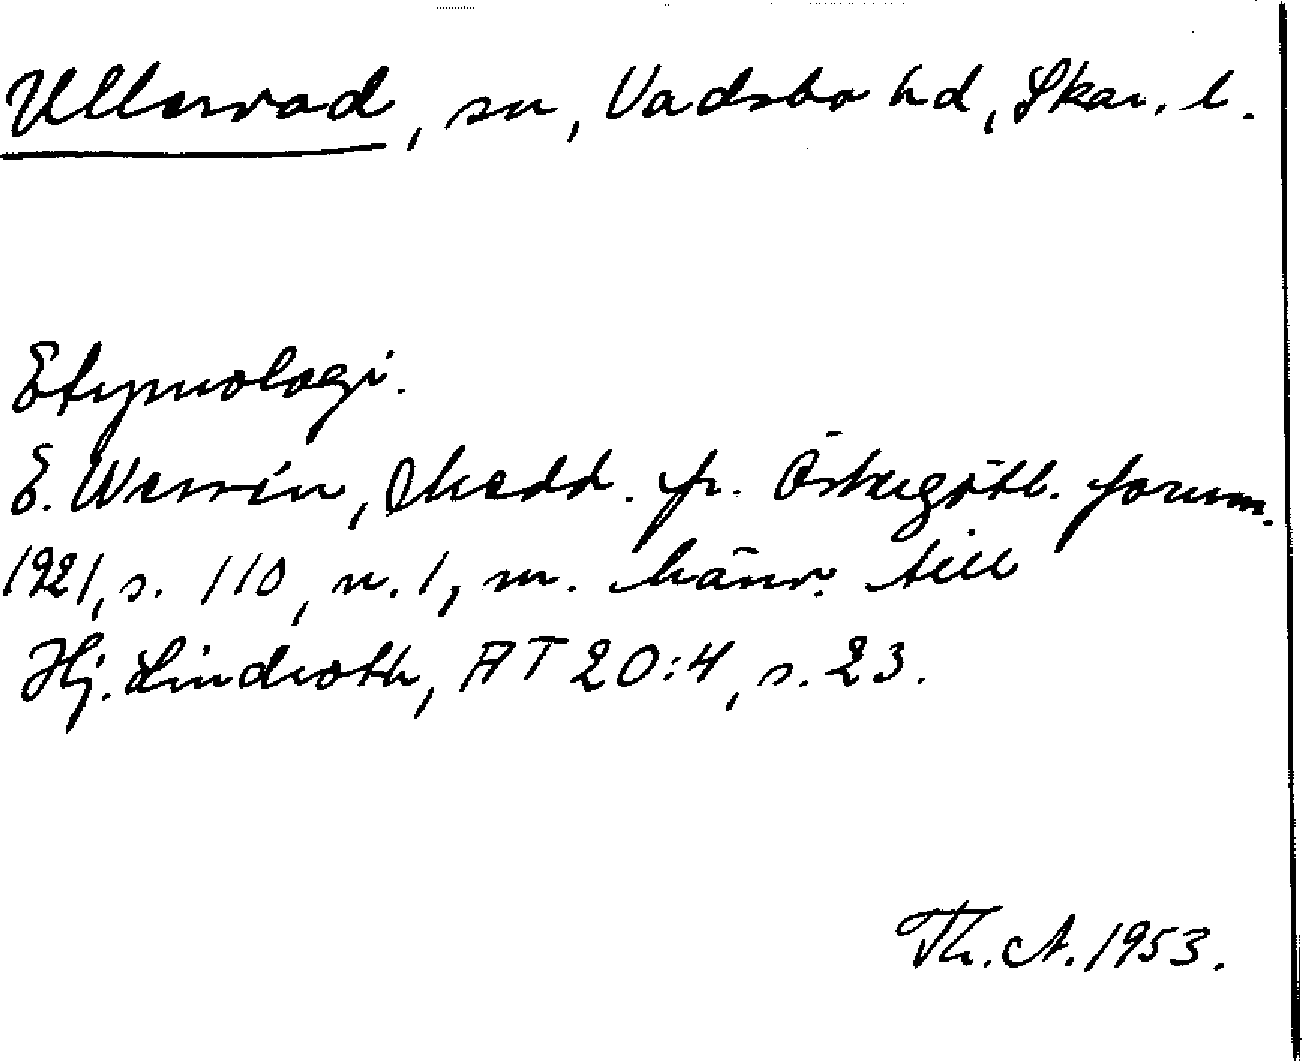 Ullervad, sn, Vadsbo hd, Skar. l.
Etymologi.
E. Wessén, Medd. fr. Östergötl. fornm.
1921, s. 110, n. 1, m. hänv. till
Hj. Lindroth, AT 20:4, s. 23.
Th. A. 1953.